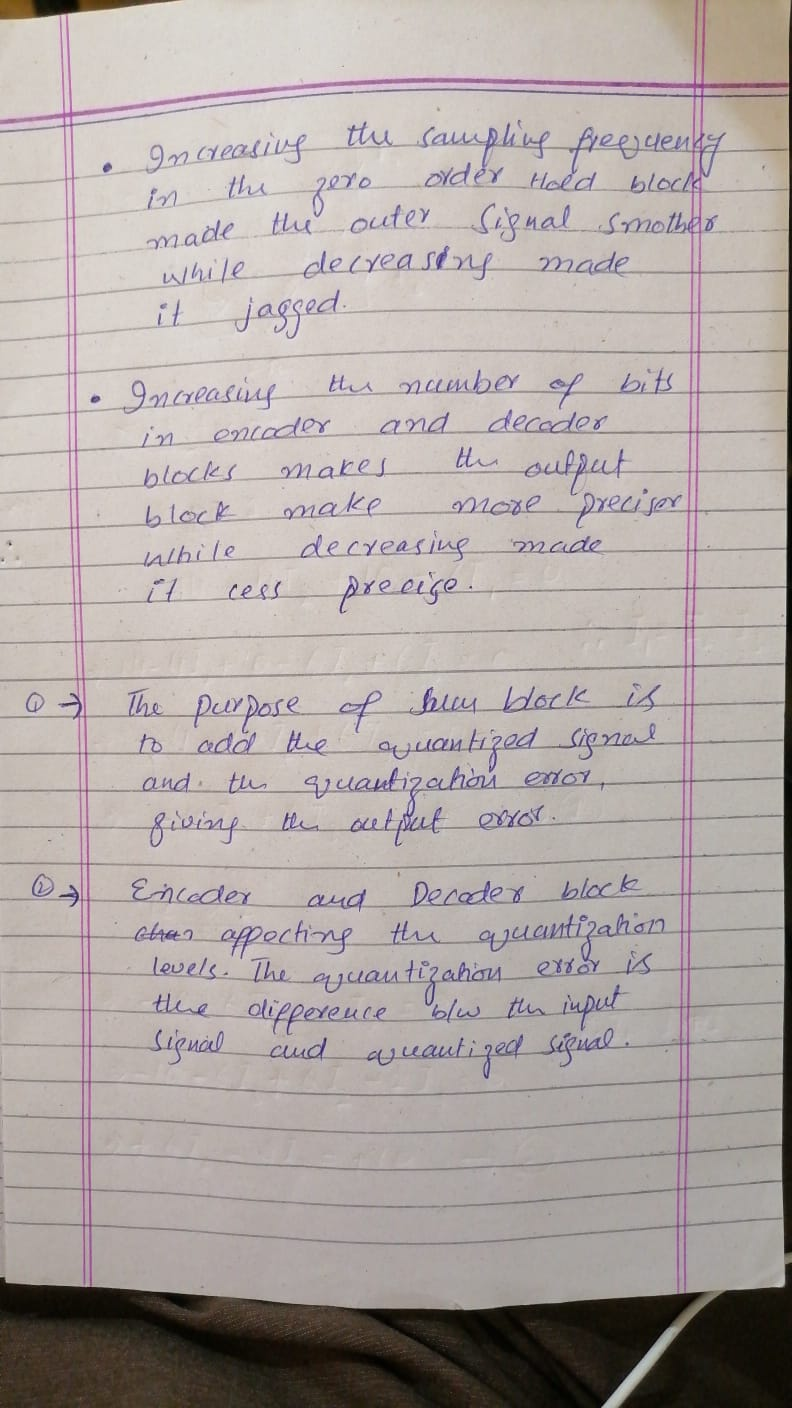 • Increasing the sampling frequency
in the zero order Hold block
made the outer signal smother
while decreasing made
it jagged.
• Increasing the number of bits
in encoder and decoder
blocks makes the output
block make more preciser
while decreasing made
it cess precise.
① → The purpose of sum block is
to add the quantized signal
and the quantization error,
giving the output error.
② → Encoder and Decoder block
appecting the quantization
levels. The quantization error is
the difference b/w the input
signal and quantized signal.